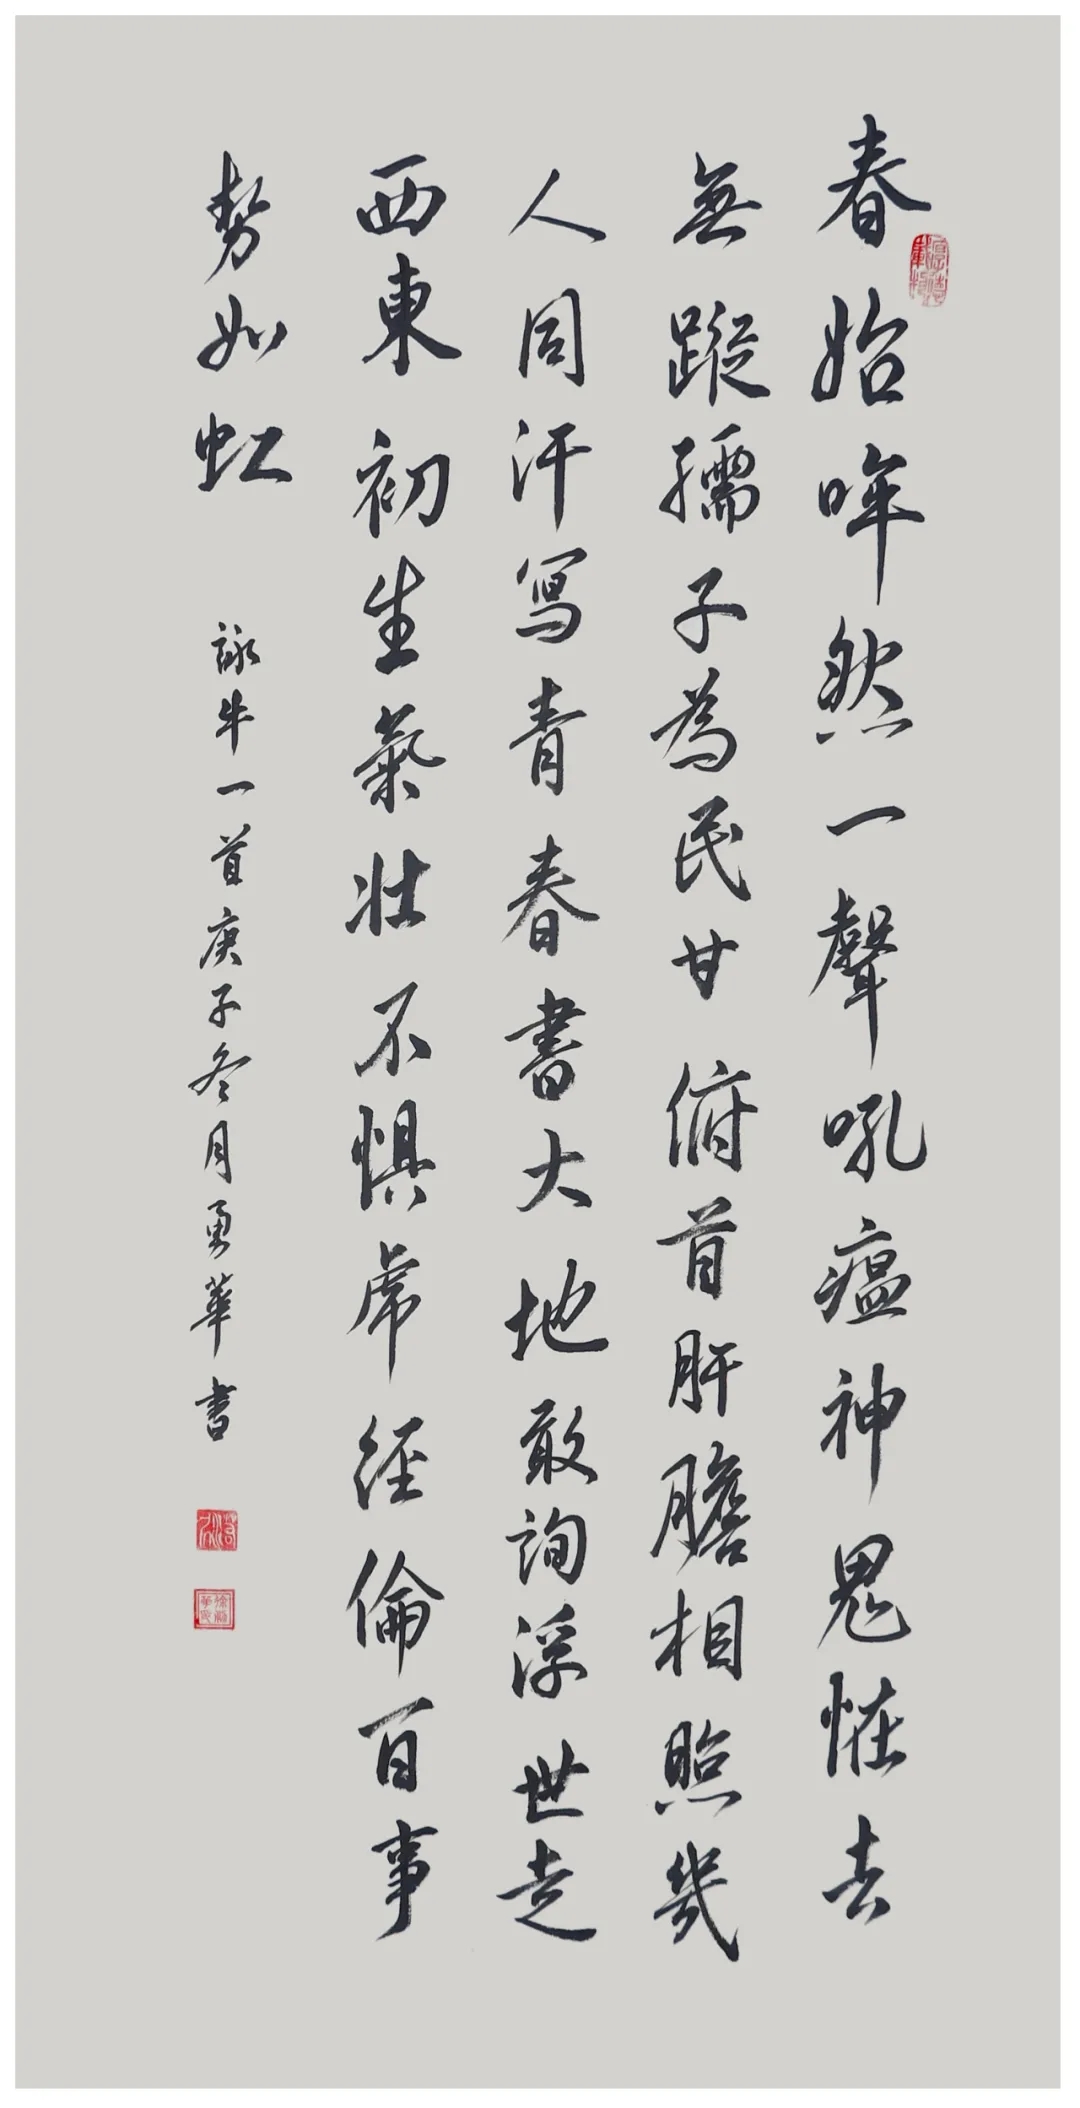 春始哞然一聲吼瘟神鬼怪去
無蹤孺子為民甘俯首肝膽相照幾
人同汗寫青春書大地敢詢浮世走
西東初生氣壯不懼虎經倫百事
勢如虹
詠牛一首庚子冬月勇華書